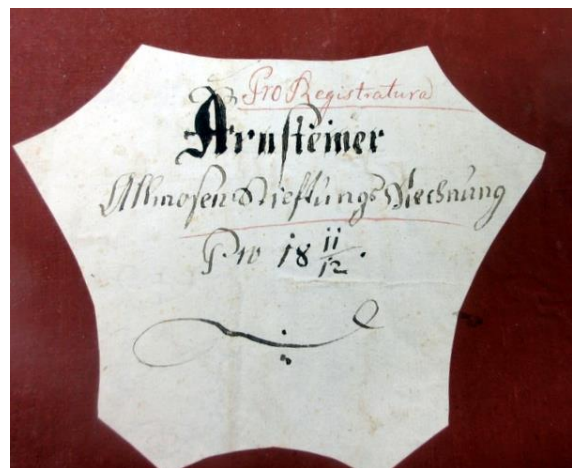 Pro Registratura
Arnsteiner
Allmosen Stieftungs Rechnung
Pro 18 11/12.